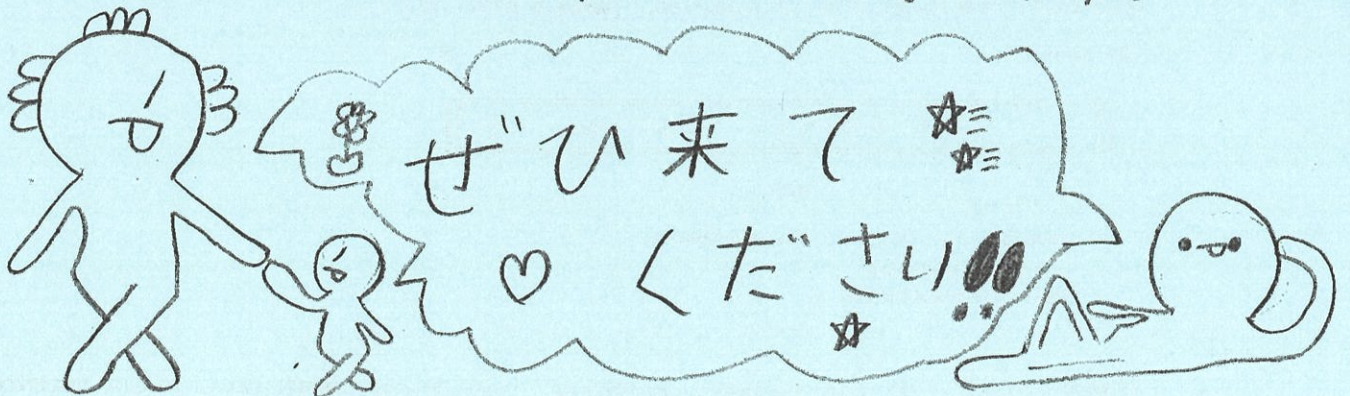 ぜひ来て
ください!!